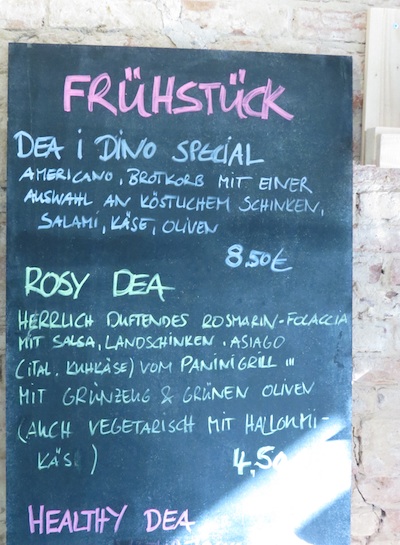 FRÜHSTÜCK
DEA i DINO SPECIAL
AMERICANO, BROTKORB MIT EINER
AUSWAHL AN KÖSTLICHEM SCHINKEN,
SALAMI, KÄSE, OLIVEN
8,50€
ROSY DEA
HERRLICH DUFTENDES ROSMARIN-FOLACCIA
MIT SALSA, LANDSCHINKEN, ASIAGO
(ITAL. KUHKÄSE) VOM PANINIGRILL ...
MIT GRÜNZEUG & GRÜNEN OLIVEN
(AUCH VEGETARISCH MIT HALLOUMI-
KÄSE)
4,50
HEALTHY DEA